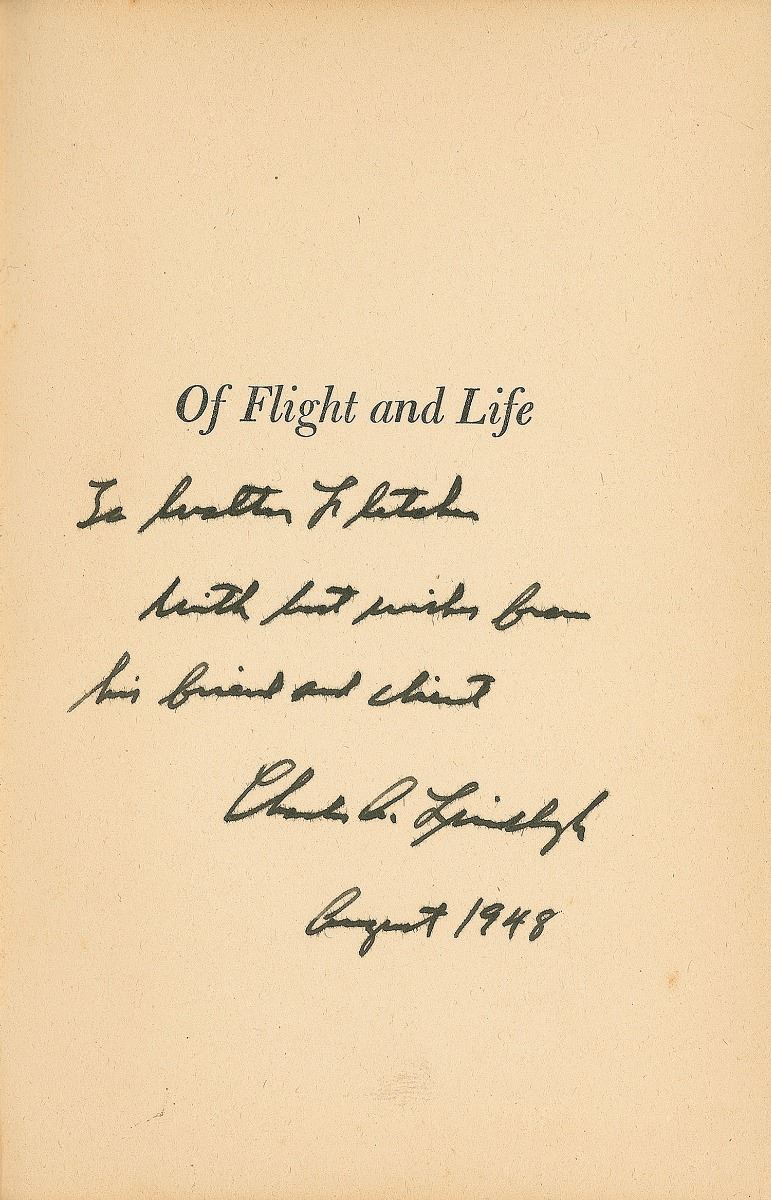 Of Flight and Life
To Walter Fletcher
with best wishes from
his friend and client
Charles A. Lindbergh
August 1948